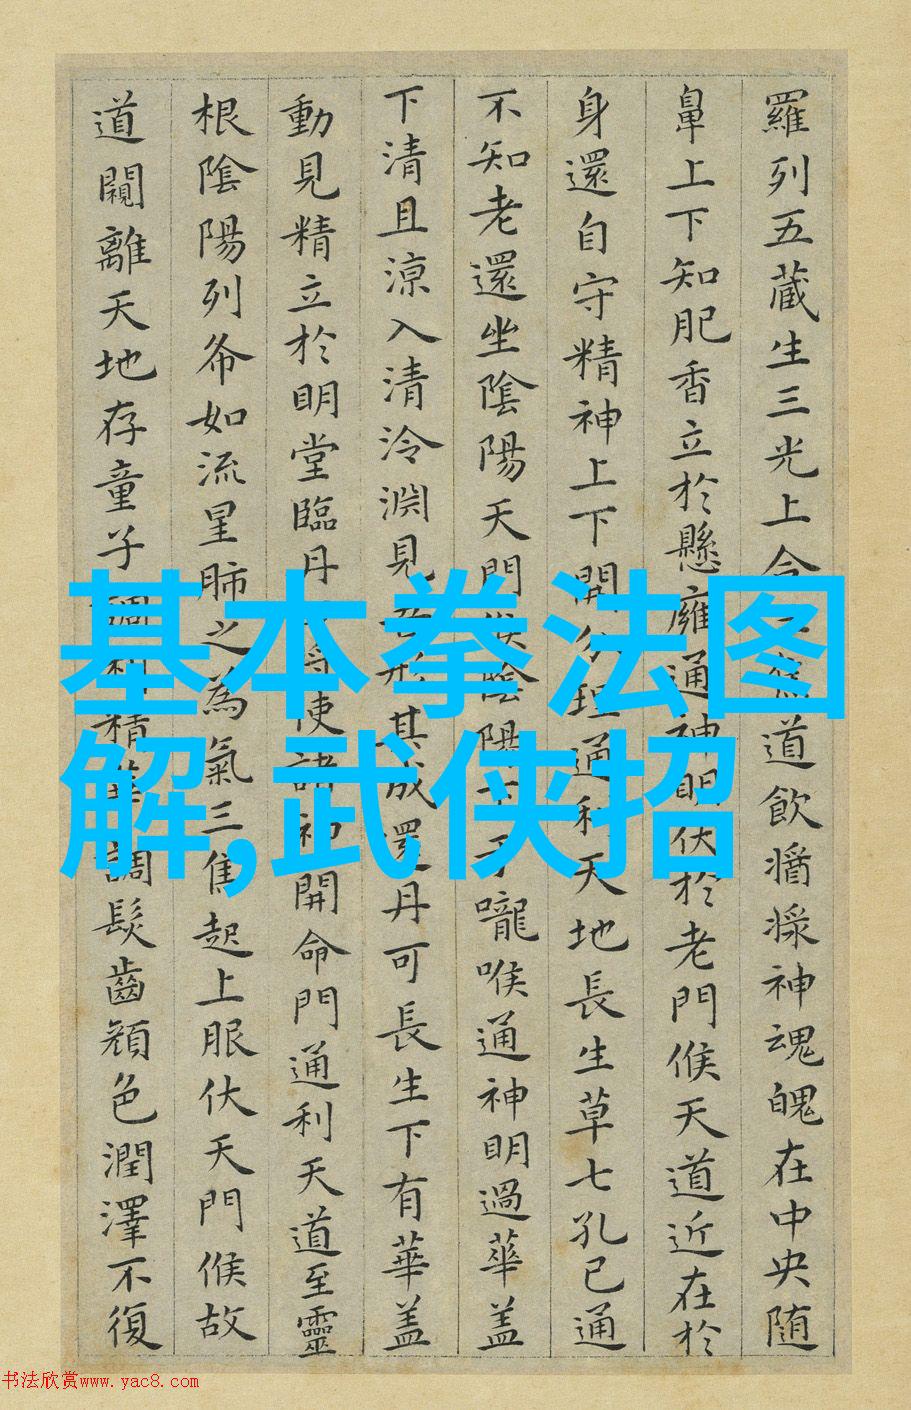 羅列五藏生三光上合
道飲醬漿神魂魄在中央随
鼻上下知肥香立於懸癰通神明伏於老門候天道近在於
身還自守精神上下開分理通利天地長生草七孔已通
不知老還坐陰陽天門候陰陽下于嚨喉通神明過華盖
下清且涼入清泠淵見吾形其成還丹可長生下有華盖
動見精立於明堂臨丹
将使諸初開命門通利天道至靈
根陰陽列布如流星肺之為氣三焦起上服伏天門候故
道闚離天地存童子調利精華調髮齒顔色潤澤不復
基本拳法图
解,武侠招
书法欣赏www.yac8.com